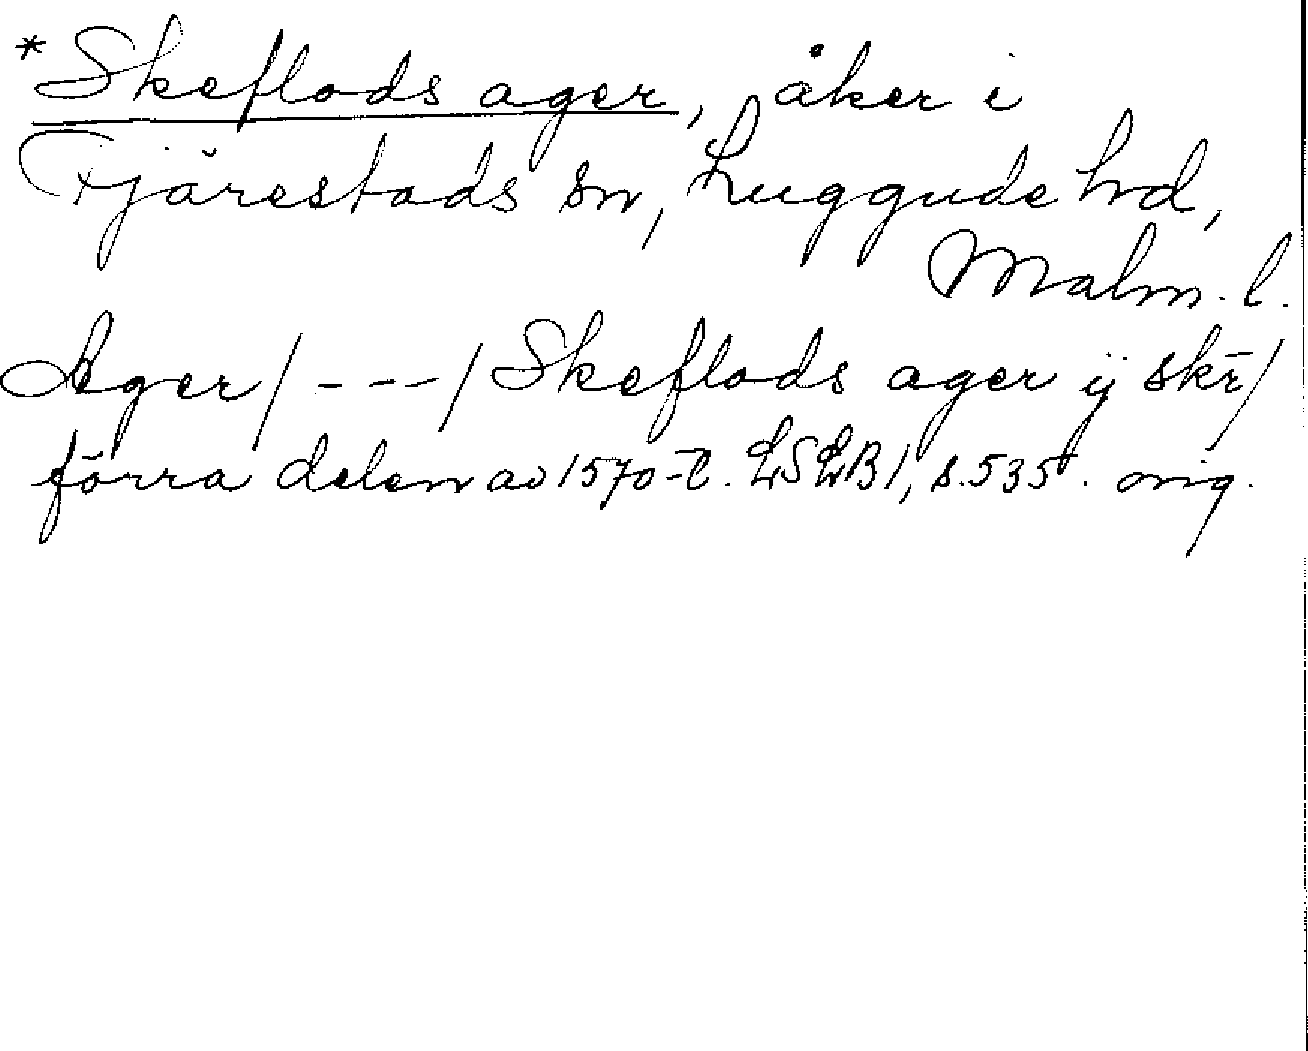 *Skeflods ager, åker i
Fjärestads sn, Luggude hd,
Malm. l.
Ager/---/Skeflods ager ij skr̄/
förra delen av 1570-t. LSLB1, s. 535. orig.